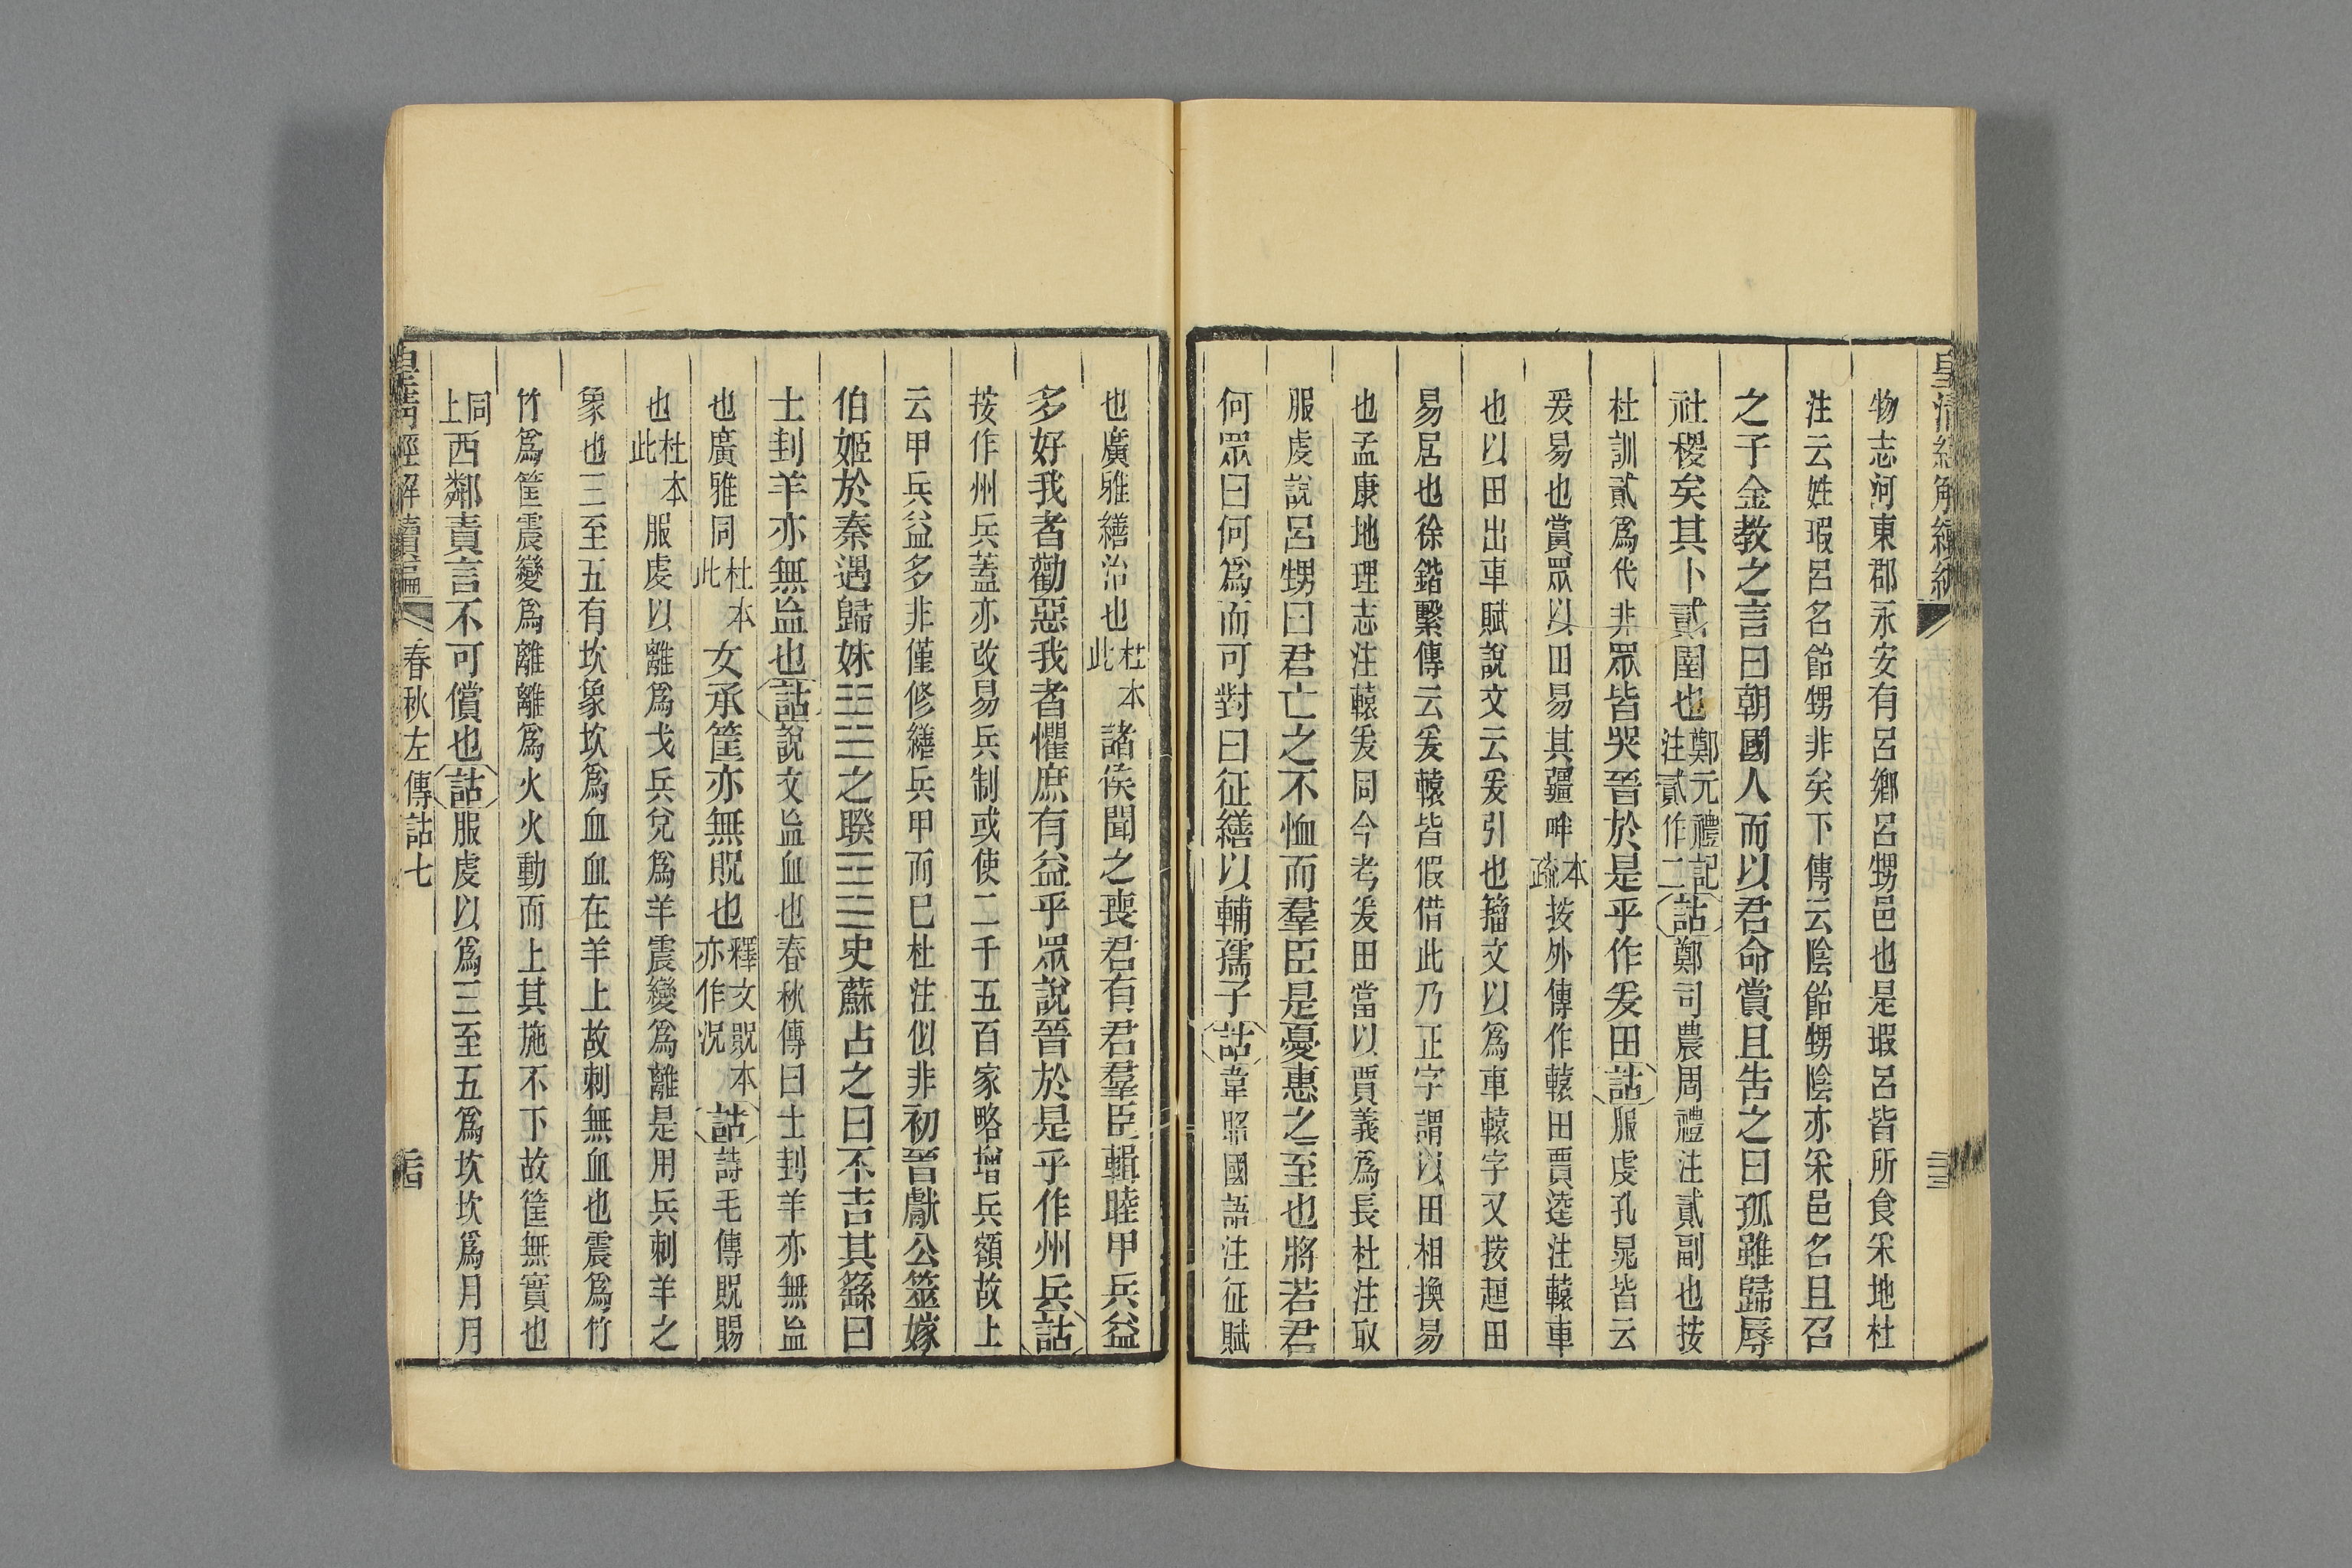 物志河東郡永安有呂鄉呂甥邑也是瑕呂皆所食采地杜
注云姓瑕呂名飴甥非矣下傳云陰飴甥陰亦采邑名且召
之子金教之言曰朝國人而以君命賞且告之曰孤雖歸辱
社稷矣其卜貳圉也鄭元禮記注貳作二詁鄭司農周禮注貳副也按
杜訓貳爲代非眾皆哭晉於是乎作爰田詁服虔孔晁皆云
爰易也賞眾以田易其疆畔本疏按外傳作轅田賈逵注轅車
也以田出車賦說文云爰引也籀文以爲車轅字又按𧻚田
易居也徐鍇繫傳云爰轅皆假借此乃正字謂以田相換易
也孟康地理志注轅爰同今考爰田當以賈義爲長杜注取
服虔說呂甥曰君亡之不恤而羣臣是憂惠之至也將若君
何眾曰何爲而可對曰征繕以輔孺子詁韋昭國語注征賦
也廣雅繕治也杜本此諸侯聞之喪君有君羣臣輯睦甲兵益
多好我者勸惡我者懼庶有益乎眾說晉於是乎作州兵詁
按作州兵蓋亦改易兵制或使二千五百家略增兵額故上
云甲兵益多非僅修繕兵甲而已杜注似非初晉獻公筮嫁
伯姬於秦遇歸妹䷵之睽䷥史蘇占之曰不吉其繇曰
士刲羊亦無衁也詁說文衁血也春秋傳曰士刲羊亦無衁
也廣雅同杜本此女承筐亦無貺也釋文貺本亦作況詁詩毛傳貺賜
也杜本此服虔以離爲戈兵兌爲羊震變爲離是用兵刺羊之
象也三至五有坎象坎爲血血在羊上故刺無血也震爲竹
竹爲筐震變爲離離爲火火動而上其施不下故筐無實也
同上西鄰責言不可償也詁服虔以爲三至五爲坎坎爲月月
皇清經解續編 春秋左傳詁七